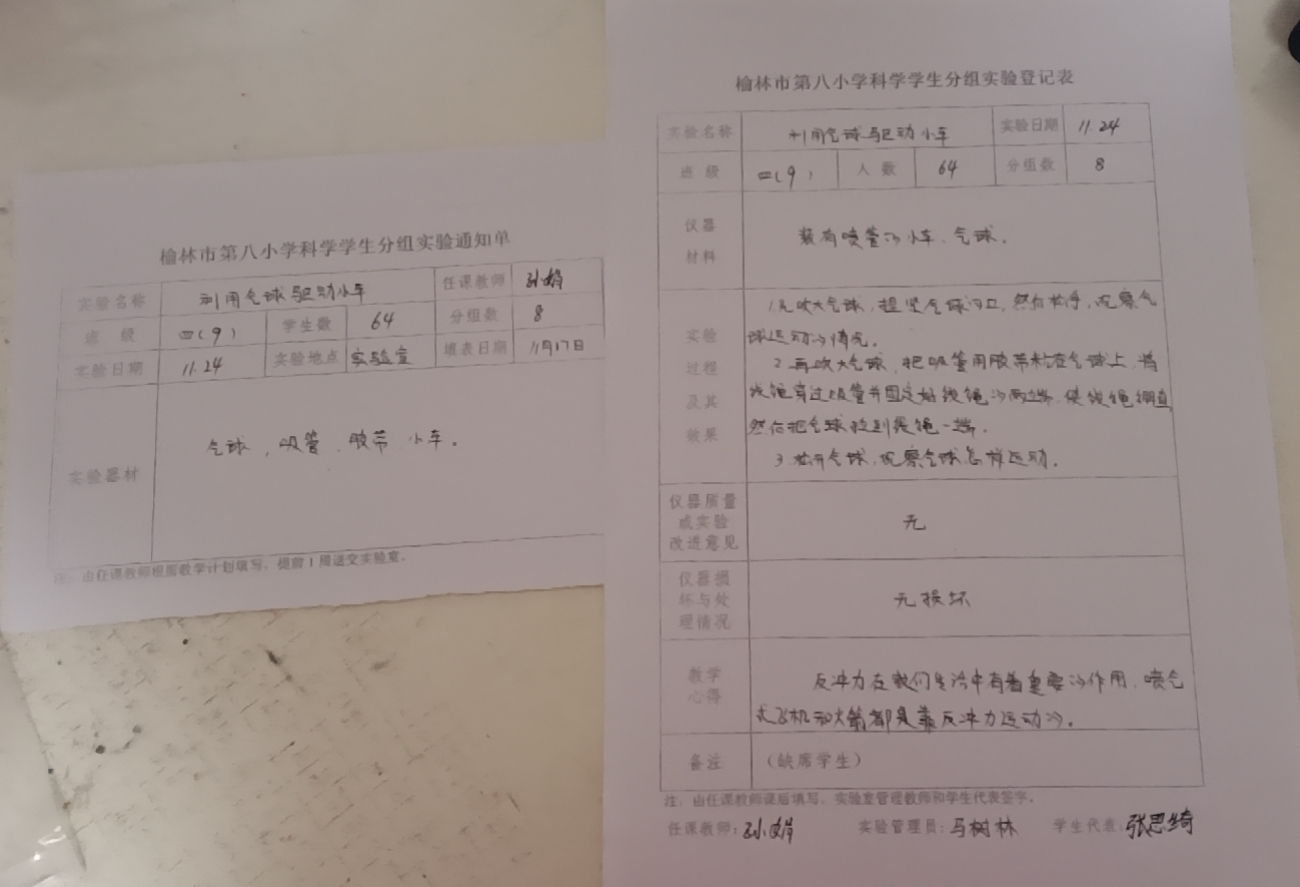 榆林市第八小学科学学生分组实验通知单
实验名称 利用气球驱动小车 任课教师 孙娟
班 级 四(9) 学生数 64 分组数 8
实验日期 11.24 实验地点 实验室 填表日期 11月17日
实验器材 气球,吸管、胶带、小车。
注:由任课教师根据教学计划填写,提前1周送交实验室。
榆林市第八小学科学学生分组实验登记表
实验名称 利用气球驱动小车 实验日期 11.24
班 级 四(9) 人 数 64 分组数 8
仪器
材料
装有喷管的小车、气球。
实验
过程
及其
效果
1.先吹大气球,捏紧气球的口,然后松手,观察气
球运动的情况。
2.再吹大气球,把吸管用胶带粘在气球上,将
线绳穿过吸管并固定好线绳的两端,使线绳绷直
然后把气球拉到线绳一端。
3.松开气球,观察气球怎样运动。
仪器质量
或实验
改进意见
无
仪器损
坏与处
理情况
无损坏
教学
心得
反冲力在我们生活中有着重要的作用,喷气
式飞机和火箭都是靠反冲力运动的。
备注 (缺席学生)
注:由任课教师课后填写,实验室管理教师和学生代表签字。
任课教师:孙娟 实验管理员:马树林 学生代表:张思绮